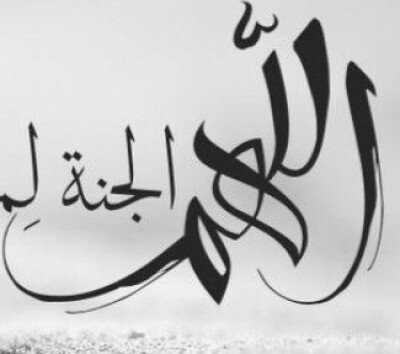 اللهم الجنة لِم